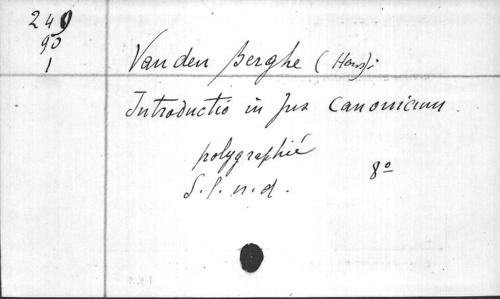 249
90
1
Van den Berghe (Hans):
Introductio in Jus Canonicum.
polygraphié
8°
S.l.n.d.